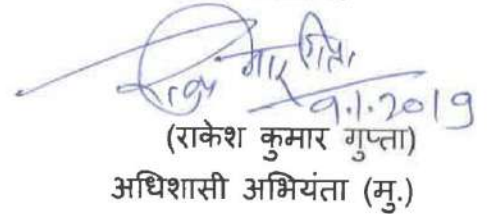 9.1.2019
(राकेश कुमार गुप्ता)
अधिशासी अभियंता (मु.)